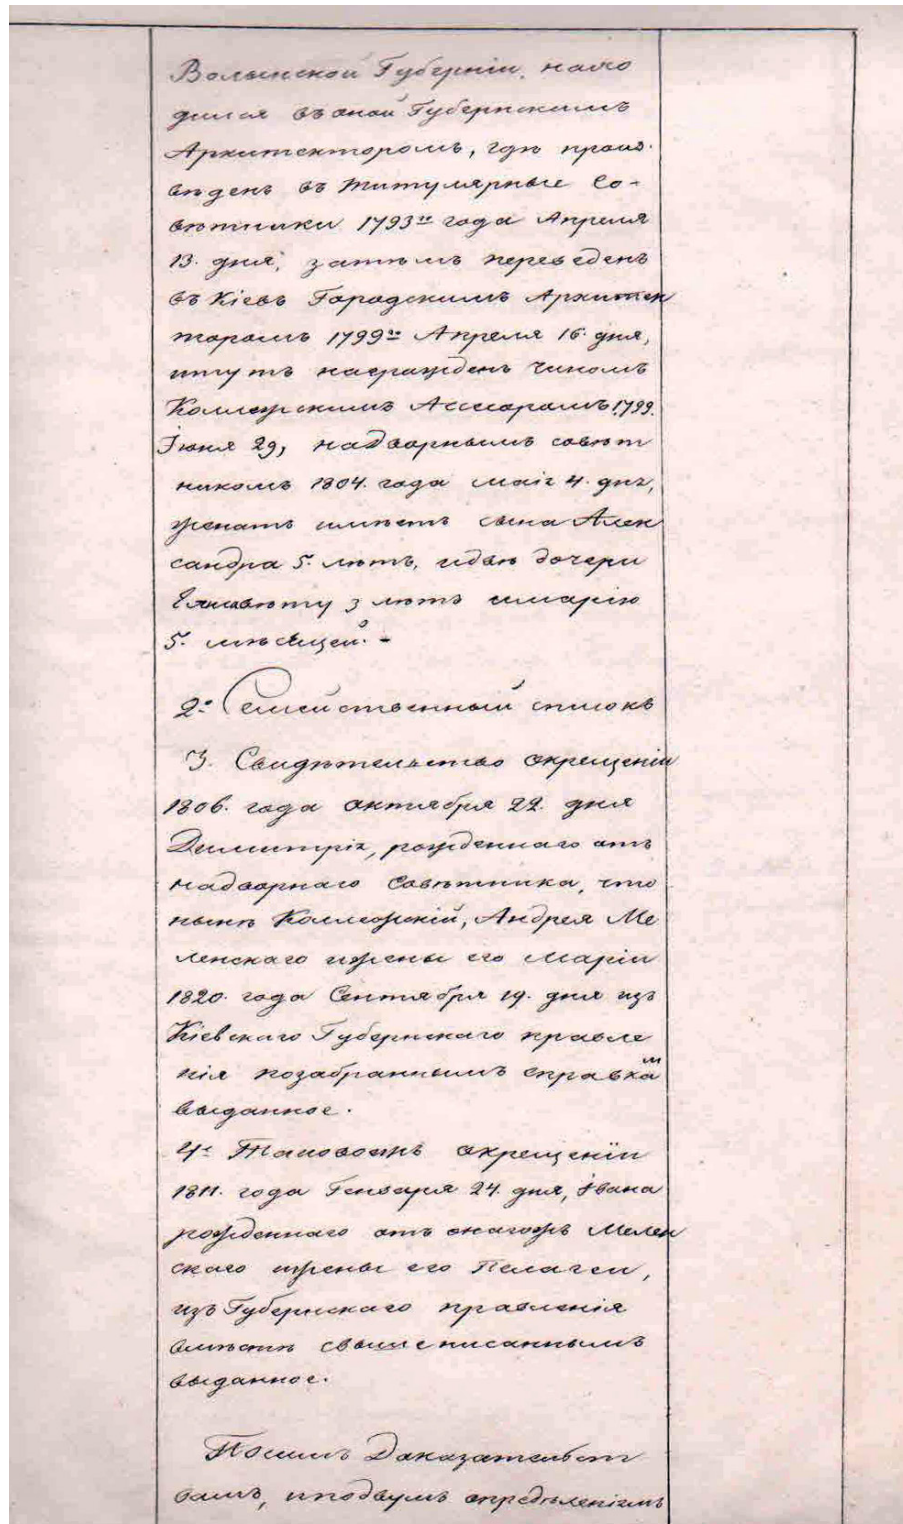 Волынской Губерніи, нахо
дился въ оной Губернскимъ
Архитекторомъ, гдѣ произ-
вѣденъ въ титулярные Со-
вѣтники 1793го года Апреля
13. дня, затѣмъ переведенъ
въ Кіевъ Городскимъ Архитек
торомъ 1799го Апреля 16. дня,
итутъ награжденъ Чиномъ
Коллежскимъ Ассесоромъ 1799.
Іюня 29, надворнымъ совѣт
никомъ 1804. года маія 4. дня,
женатъ имѣетъ сына Алек
сандра 5. лѣтъ, идвѣ дочери
Елисавету 3 лѣтъ имарію
5. мѣсяцей. -
2е Семейственный списокъ
3. Свидѣтельство окрещеніи
1806. года октября 22. дня
Димитрія, рожденнаго отъ
надворнаго Совѣтника, что
нынѣ Коллежскій, Андрея Ме
ленскаго ижены его Маріи
1820. года Сентября 19. дня изъ
Кіевскаго Губернскаго правле
нія позабраннымъ справкам
выданное.
4е Таковоежъ окрещеніи
1811. года Генваря 24. дня, Ивана
рожденнаго отъ онагожъ Мелен
скаго ижены его Пелагеи,
изъ Губернскаго правленія
вмѣстѣ свышеписаннымъ
выданное.
Посимъ Доказательст
вамъ, иподвумъ опредѣленіямъ